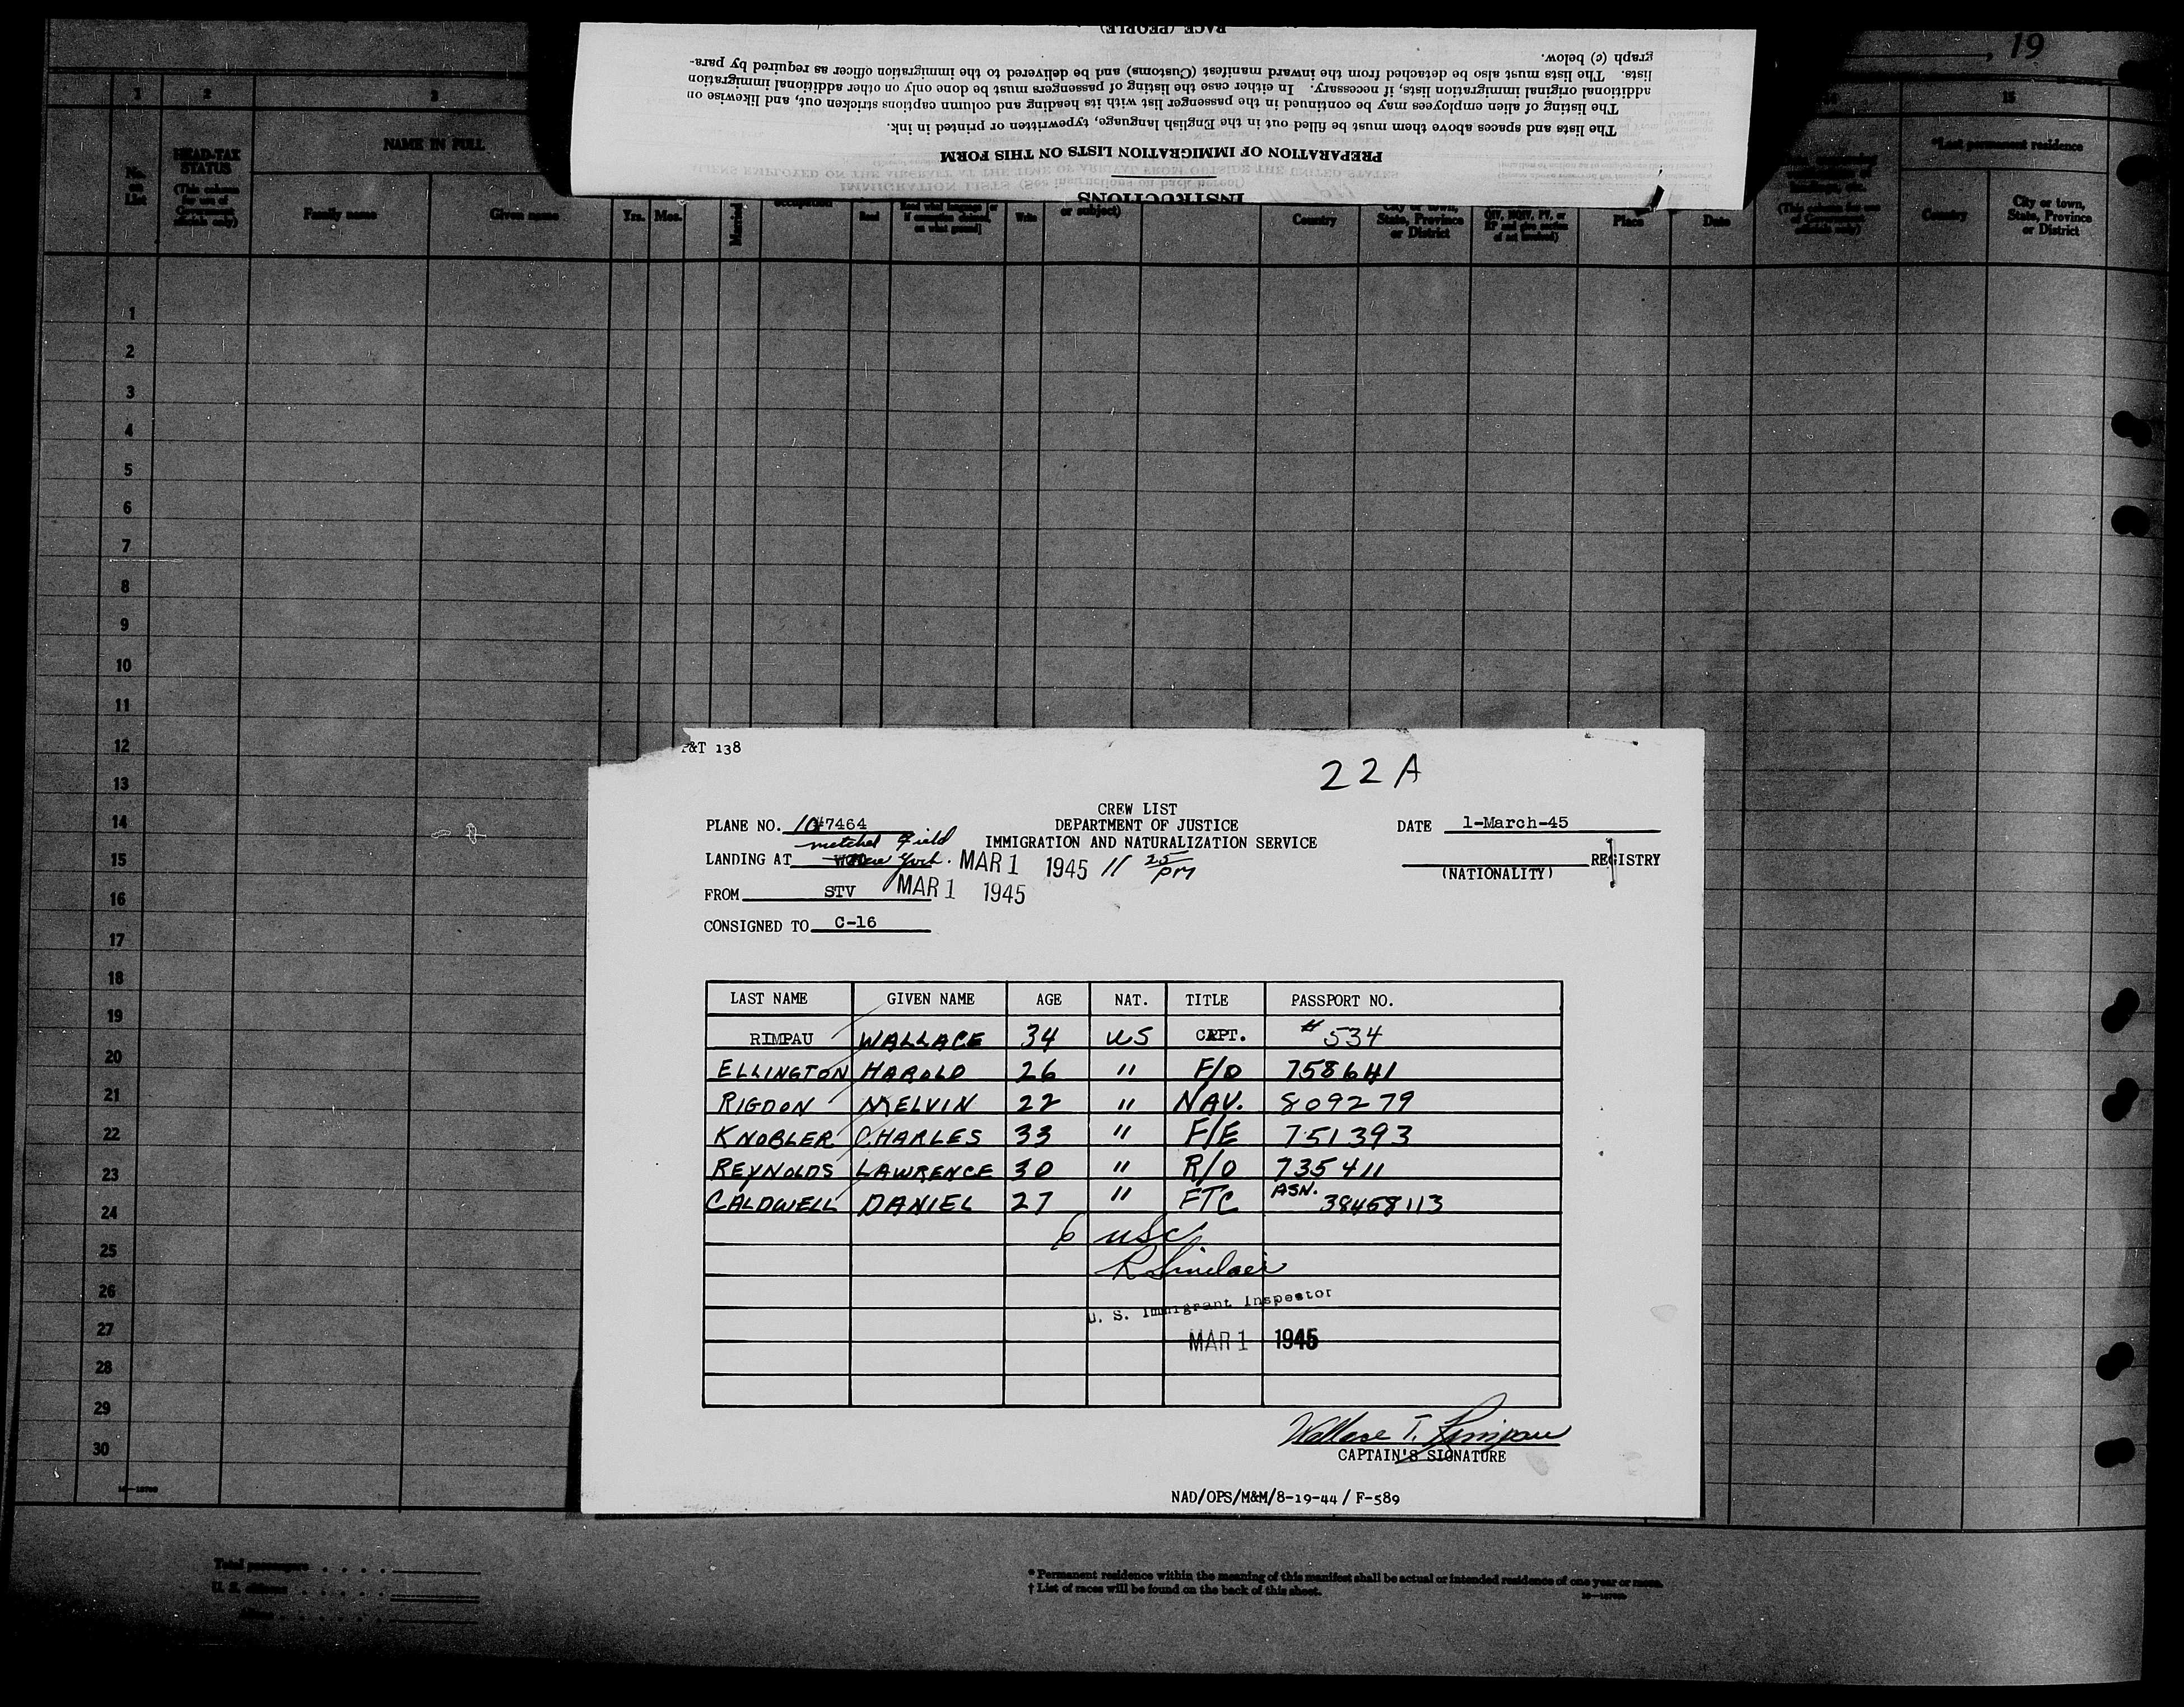 19
RACE (PEOPLE)
graph (c) below.
lists. The lists must also be detached from the inward manifest (Customs) and be delivered to the immigration officer as required by para-
additional original immigration lists, if necessary. In either case the listing of passengers must be done only on other additional immigration
The listing of alien employees may be continued in the passenger list with its heading and column captions stricken out, and likewise on
The lists and spaces above them must be filled out in the English language, typewritten or printed in ink.
PREPARATION OF IMMIGRATION LISTS ON THIS FORM
INSTRUCTIONS
1 2 3 15
No. on List
HEAD-TAX STATUS
(This column for use of Government officials only)
NAME IN FULL
Family name Given name
Yrs. Mos.
Married
occupation
Read
Read what language [or if exemption claimed, on what ground]
Write
or subject)
Country
City or town, State, Province or District
Place Date
(This column for use of Government officials only)
*Last permanent residence
Country
City or town, State, Province or District
1
2
3
4
5
6
7
8
9
10
11
12
13
14
15
16
17
18
19
20
21
22
23
24
25
26
27
28
29
30
P&T 138
22A
CREW LIST
PLANE NO. 10#7464 DEPARTMENT OF JUSTICE DATE 1-March-45
mitchel Field IMMIGRATION AND NATURALIZATION SERVICE
LANDING AT New York. MAR 1 1945 11 25 PM REGISTRY
(NATIONALITY)
FROM STV MAR 1 1945
CONSIGNED TO C-16
LAST NAME GIVEN NAME AGE NAT. TITLE PASSPORT NO.
RIMPAU WALLACE 34 US CAPT. #534
ELLINGTON HAROLD 26 " F/O 758641
RIGDON MELVIN 22 " NAV. 809279
KNOBLER CHARLES 33 " F/E 751393
REYNOLDS LAWRENCE 30 " R/O 735411
CALDWELL DANIEL 27 " FTC ASN. 38458113
6 USC
R Sinclair
U. S. Immigrant Inspector
MAR 1 1945
Wallace T. Rimpau
CAPTAIN'S SIGNATURE
NAD/OPS/M&M/8-19-44 / F-589
Total passengers
U. S. citizens
Aliens
* Permanent residence within the meaning of this manifest shall be actual or intended residence of one year or more.
† List of races will be found on the back of this sheet.